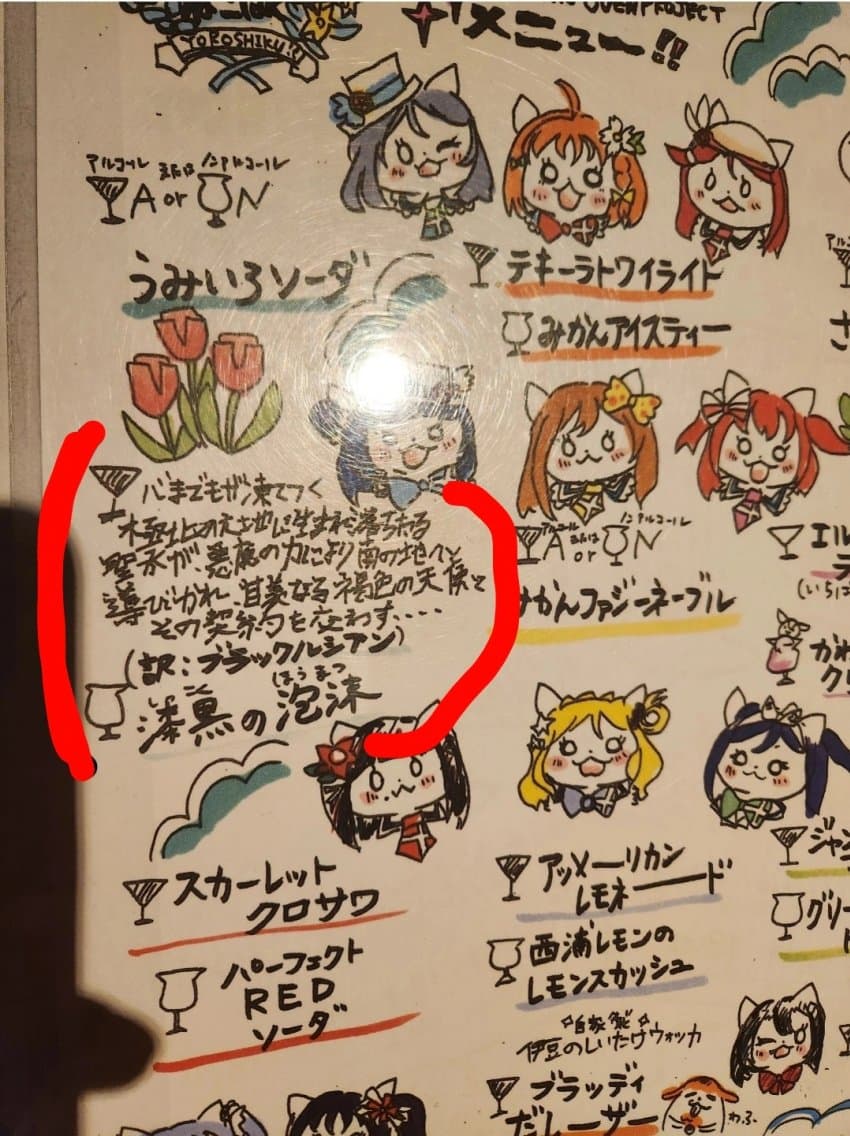 YOROSHIKU!!
PROJECT
メニュー!!
アルコール または ノンアルコール
A or N
うみいろソーダ
テキーラトワイライト
みかんアイスティー
さ
心までもが凍てつく
極北の大地に生まれ落ちたる
聖水が、悪魔の力により南の地へと
導びかれ、甘美なる褐色の天使と
その契約を交わす....
(訳:ブラックルシアン)
しっこく ほうまつ
漆黒の泡沫
アルコール または ノンアルコール
A or N
みかんファジーネーブル
エル
(いちは
かわ
クリ
スカーレット
クロサワ
パーフェクト
RED
ソーダ
アッメーリカン
レモネード
西浦レモンの
レモンスカッシュ
ジャン
グリー
自家製
伊豆のしいたけウォッカ
ブラッディ
だレーザー
わふ